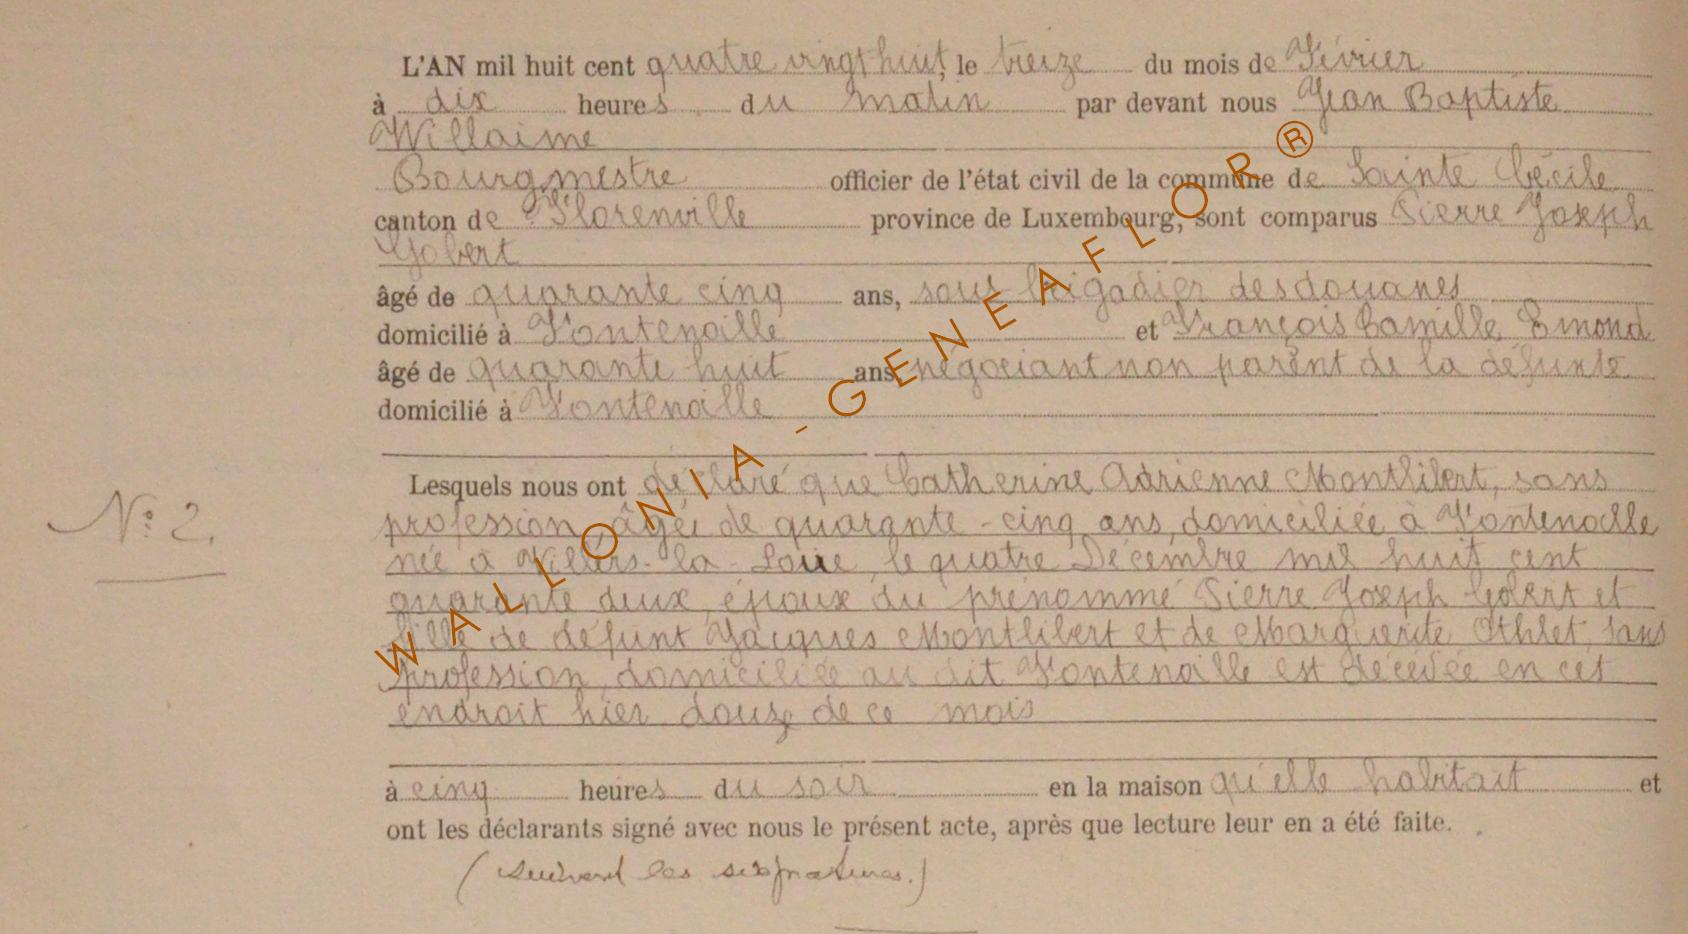 L'AN mil huit cent quatre vingt huit, le treize du mois de Février
à dix heures du matin par devant nous Jean Baptiste
Willaime
Bourgmestre officier de l'état civil de la commune de Sainte Cécile
canton de Florenville province de Luxembourg, sont comparus Pierre Joseph
Gobert
âgé de quarante cinq ans, sous brigadier des douanes
domicilié à Fontenoille et François Camille Emond
âgé de quarante huit ans, négociant non parent de la défunte
domicilié à Fontenoille
Lesquels nous ont déclaré que Catherine Adrienne Monthibert, sans
N° 2.
profession, âgée de quarante-cinq ans, domiciliée à Fontenoille
née à Villers-la-Loue, le quatre Décembre mil huit cent
quarante deux, époux du prénommé Pierre Joseph Gobert et
fille de défunt Jacques Montlibert et de Marguerite Othlet, sans
profession, domiciliée au dit Fontenoille est décédée en cet
endroit hier douze de ce mois
à cinq heures du soir en la maison qu'elle habitait et
ont les déclarants signé avec nous le présent acte, après que lecture leur en a été faite.
(suivent les signatures.)
WALLONIA-GENEAFLOR®